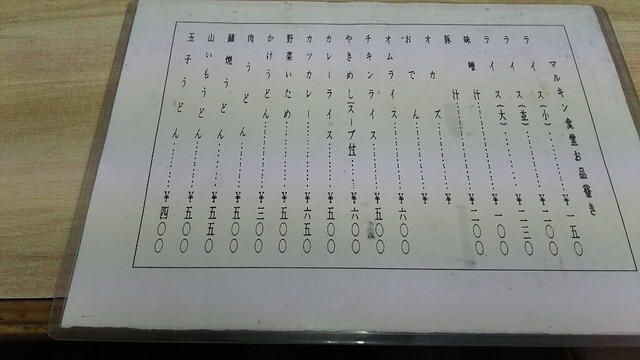 マルキン食堂お品書き
ライス(小)………¥一五〇
ライス(並)………¥二〇〇
ライス(大)………¥二三〇
味噌汁………¥一〇〇
豚汁………¥二〇〇
オカズ………¥
おでん………¥
オムライス………¥六〇〇
チキンライス………¥五〇〇
やきめし(スープ付)……¥六〇〇
カレーライス………¥五〇〇
カツカレー………¥六五〇
野菜いため………¥五〇〇
かけうどん………¥三〇〇
肉うどん………¥五〇〇
鍋焼うどん………¥五五〇
山いもうどん………¥五〇〇
玉子うどん………¥四〇〇